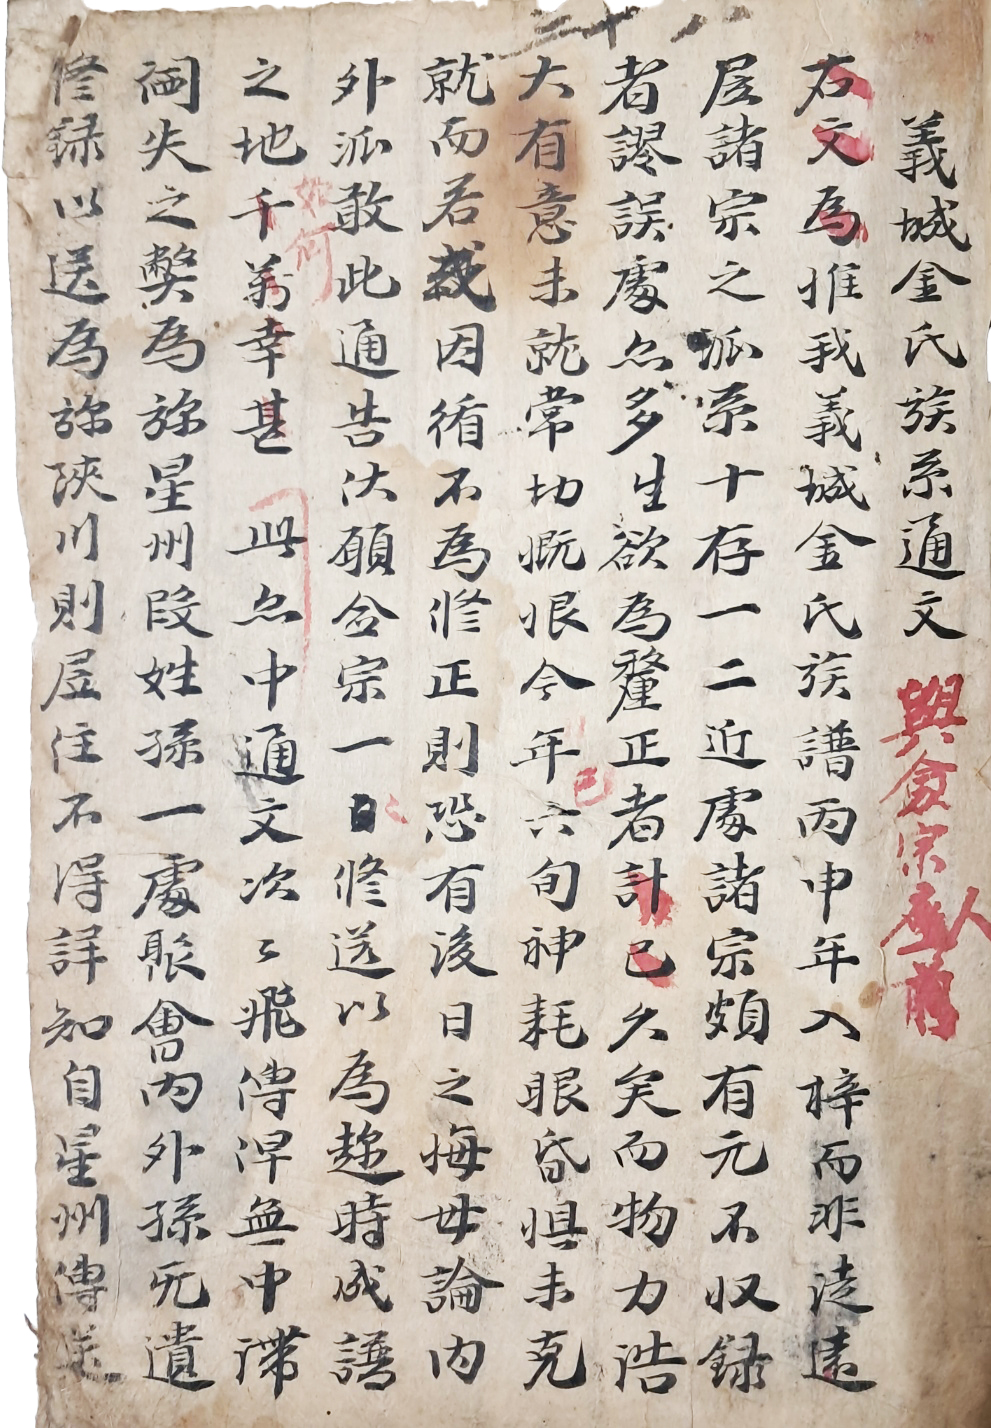 二十八
義城金氏族系通文 與僉宗座前人
右文為惟我義城金氏族譜丙申年入梓而非徒遠
居諸宗之派系十存一二近處諸宗頗有元不収録
者謬誤處亦多生欲為釐正者計已久矣而物力浩
大有意未就常切慨恨今年六旬神耗眼昏惧未克
已
就而若或因循不為修正則恐有後日之悔毋論内
外派敢此通告伏願僉宗一日修送以為趂時成譜
如何
之地千萬幸甚 此亦中通文次〻飛傳浑無中滯
闕失之弊為旀星州段姓孫一處聚會内外孫旡遺
修録以送為旀陜川則居住不得詳知自星州傳送